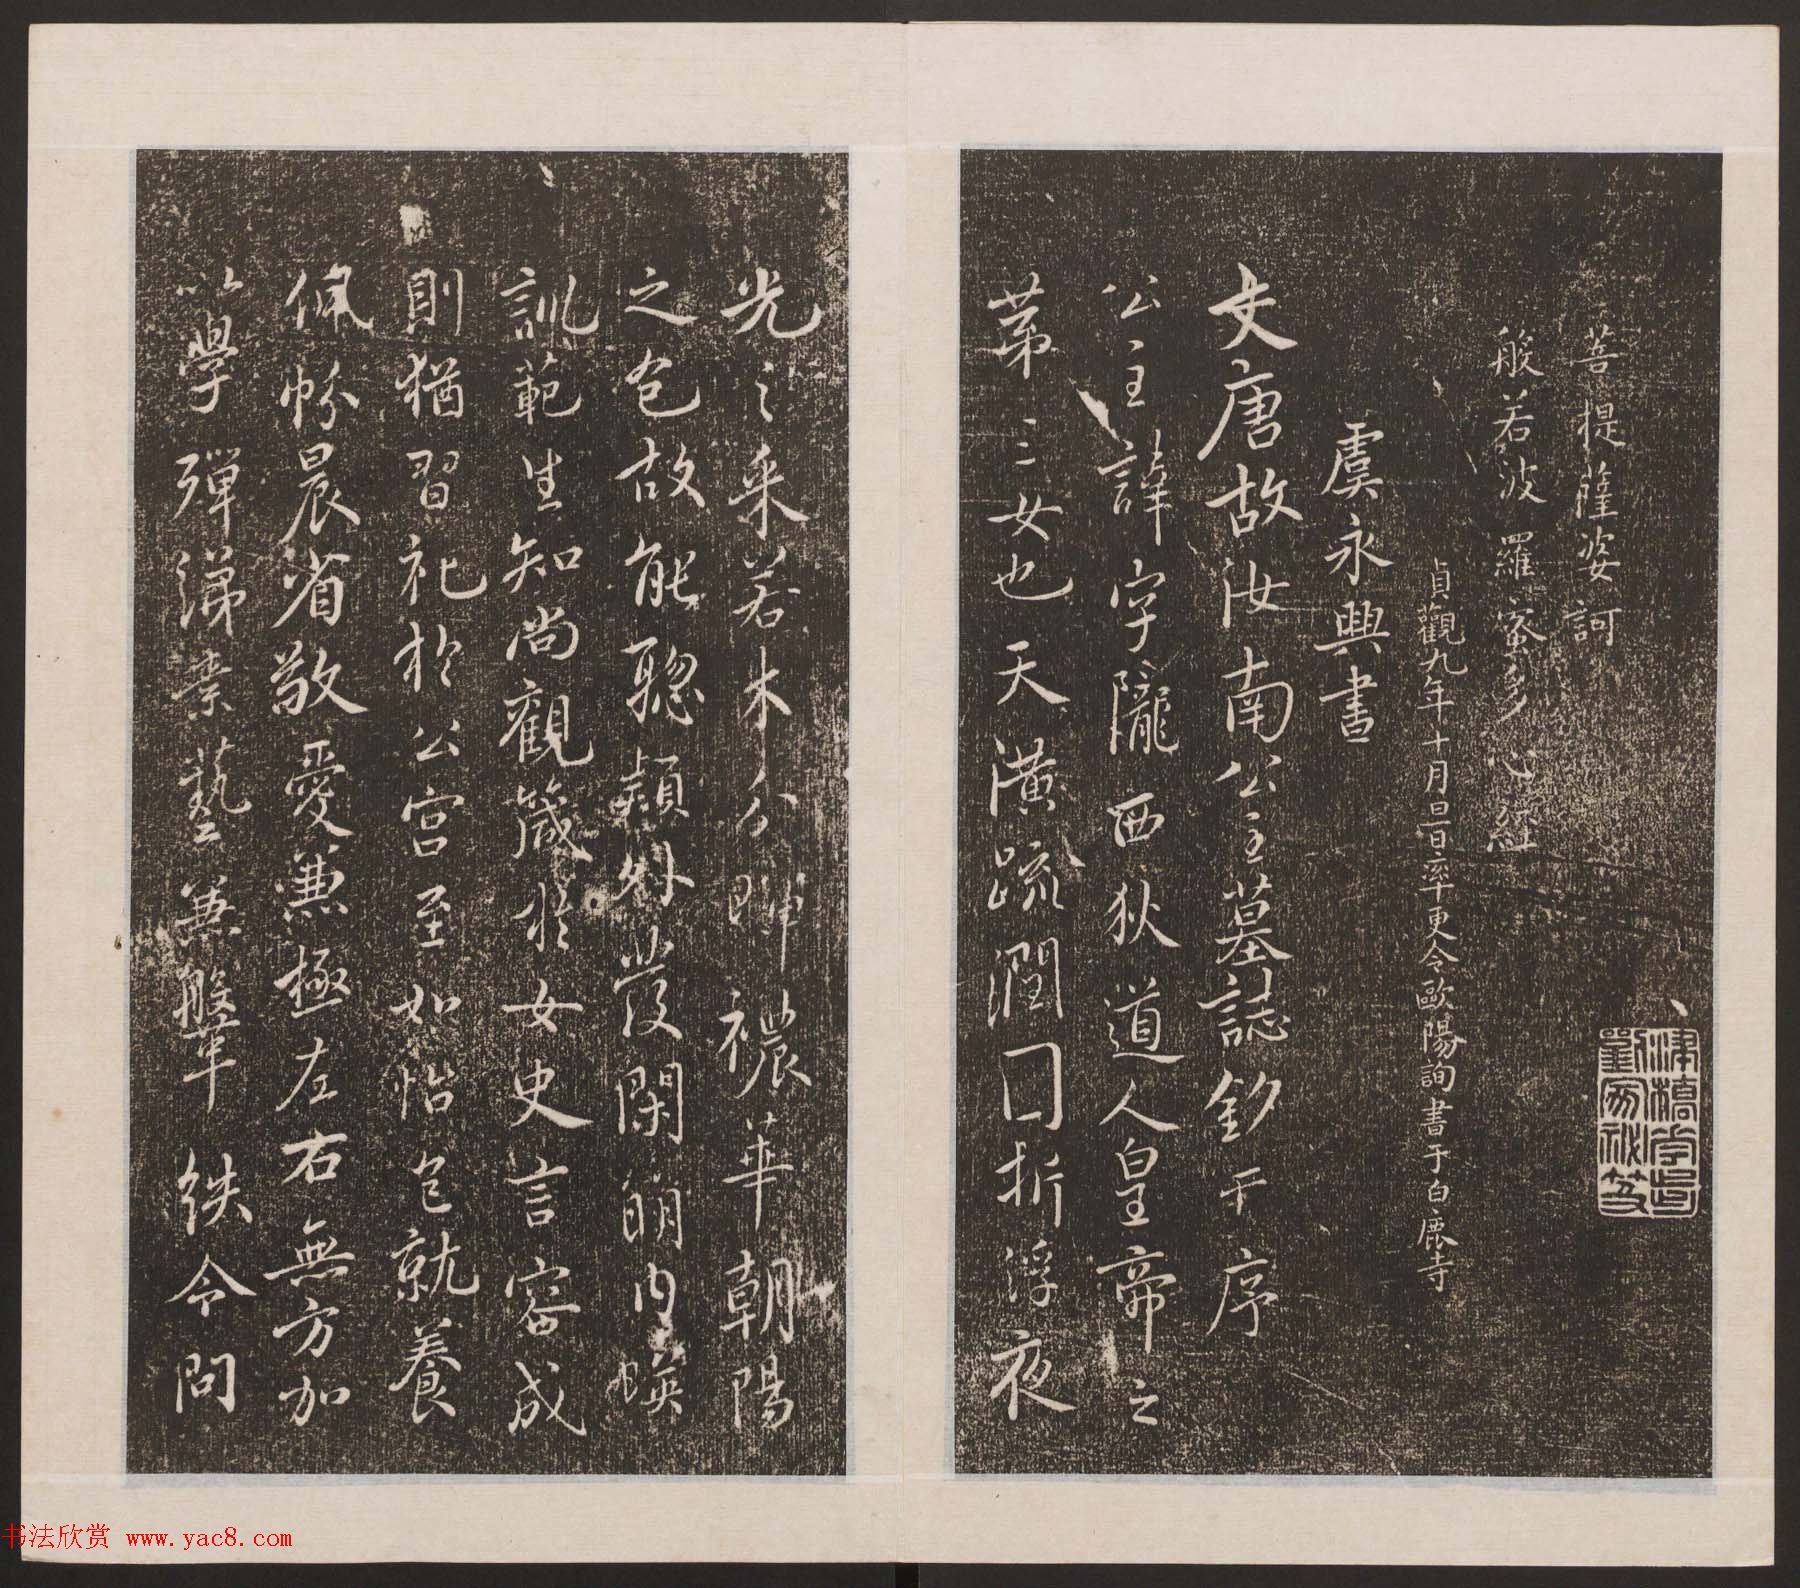 菩提薩婆訶
般若波羅蜜多心經
貞觀九年十月旦日率更令歐陽詢書于白鹿寺
虞永興書
大唐故汝南公主墓誌銘并序
公主諱字隴西狄道人皇帝之
第三女也天潢疏潤圓折浮夜
光之采若木分暉穠華朝陽
之色故能聰穎外發閑明內暎
訓範生知尚觀箴於女史言容成
則猶習礼於公宮至如怡色就養
佩帉晨省敬愛兼極左右無方加
以學殫綈素藝兼鞶紩令問
書法欣赏 www.yac8.com